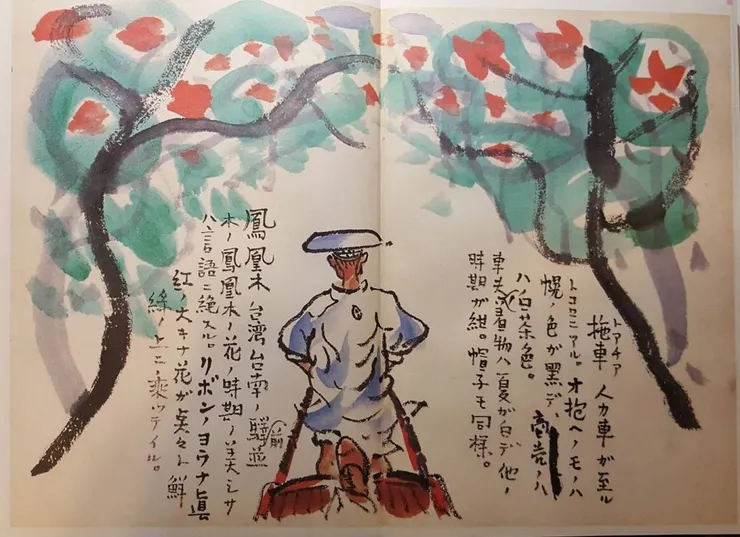 トアチァ
拖車 人力車が至ル
トコロニアル。オ抱ヘノモノハ
幌ノ色が黒デ、
ハ白茶色。
車夫ノ着物ハ夏が白デ他ノ
時期が紺。帽子モ同様。
鳳凰木 台湾台南ノ驛前並
木ノ鳳凰木ノ花ノ時期ノ美シサ
ハ言語ニ絶スル。リボンノヨウナ眞
紅ノ大キナ花が点々ト鮮
緑ノ上ニ乗ッテイル。